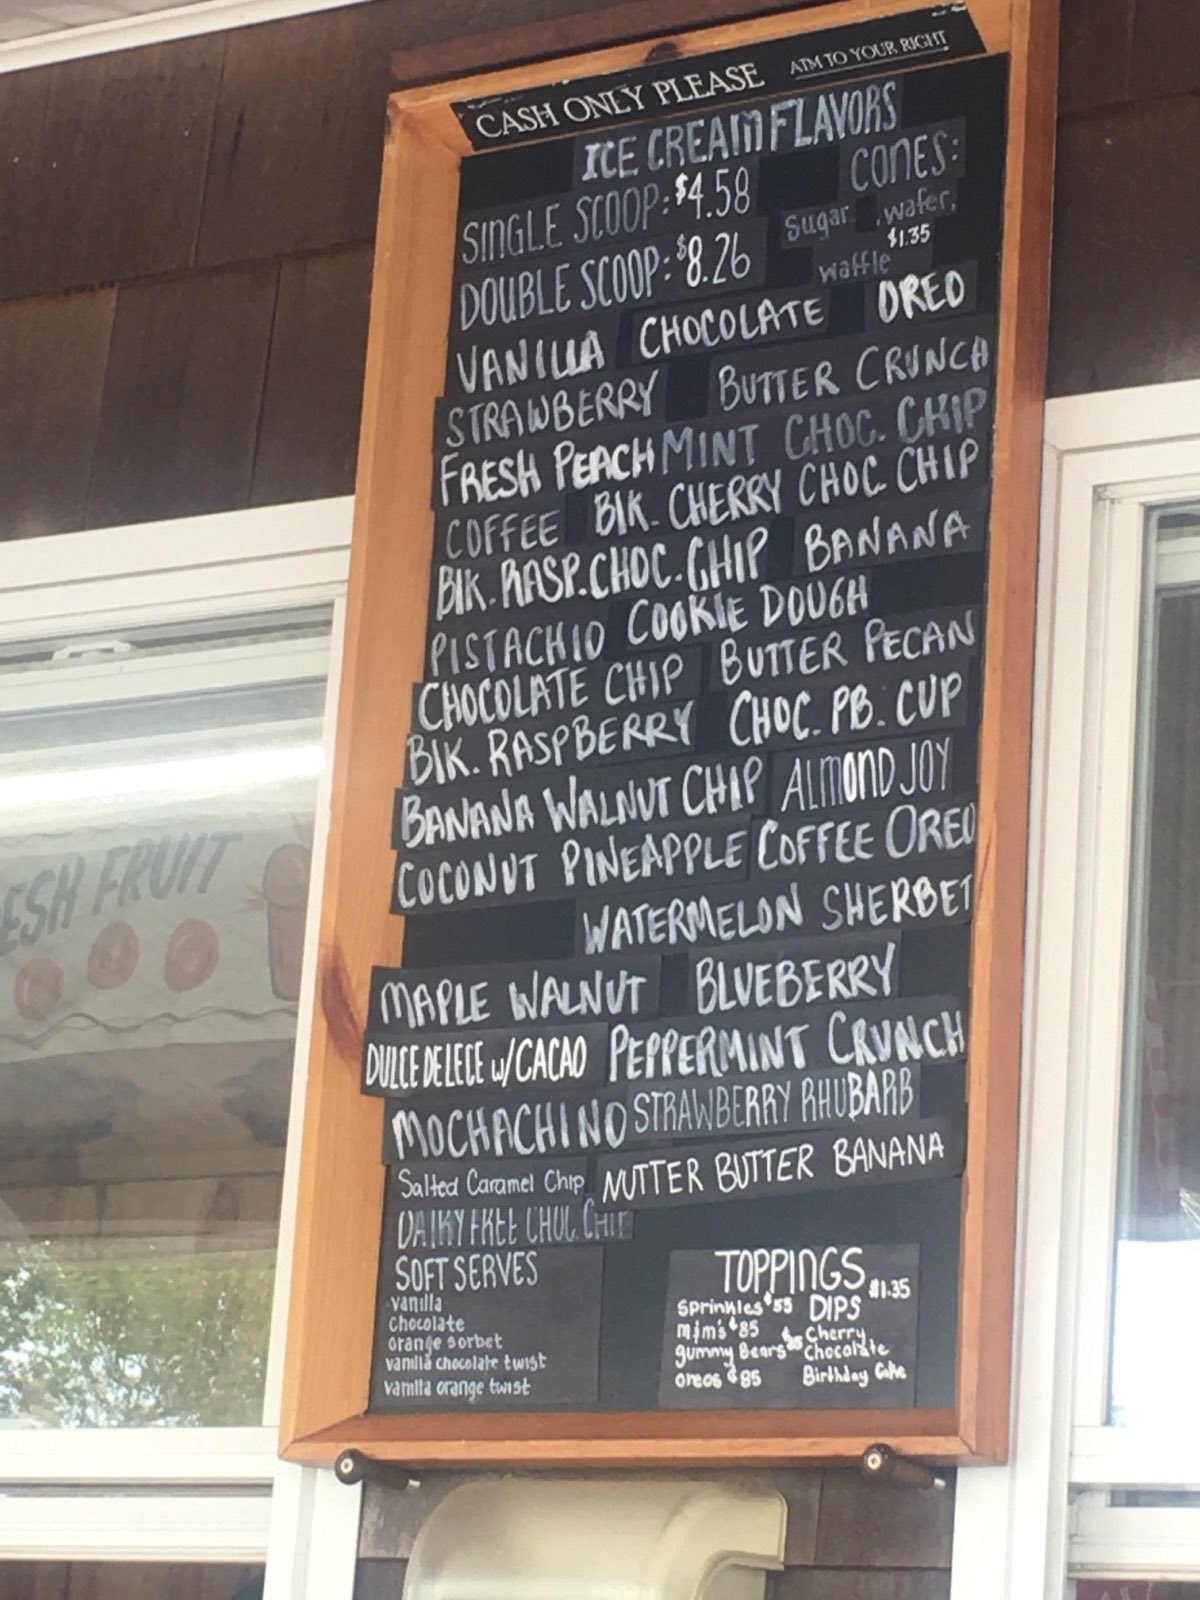 CASH ONLY PLEASE ATM TO YOUR RIGHT
ICE CREAM FLAVORS
SINGLE SCOOP: $4.58
DOUBLE SCOOP: $8.26
CONES:
Sugar, wafer,
$1.35
waffle
VANILLA CHOCOLATE OREO
STRAWBERRY BUTTER CRUNCH
FRESH PEACH MINT CHOC. CHIP
COFFEE BlK. CHERRY CHOC. CHIP
BlK. RASP. CHOC. CHIP BANANA
PISTACHIO COOKIE DOUGH
CHOCOLATE CHIP BUTTER PECAN
BlK. RASPBERRY CHOC. PB. CUP
BANANA WALNUT CHIP ALMOND JOY
COCONUT PINEAPPLE COFFEE OREO
WATERMELON SHERBET
MAPLE WALNUT BLUEBERRY
DULCE DELECE w/CACAO PEPPERMINT CRUNCH
MOCHACHINO STRAWBERRY RHUBARB
Salted Caramel Chip NUTTER BUTTER BANANA
DAIRY FREE CHOC. CHIP
SOFT SERVES
vanilla
chocolate
orange sorbet
vanilla chocolate twist
vanilla orange twist
TOPPINGS
Sprinkles $.55
m&m's $.85
gummy Bears $.85
oreos $.85
DIPS $1.35
Cherry
Chocolate
Birthday Cake
ESH FRUIT